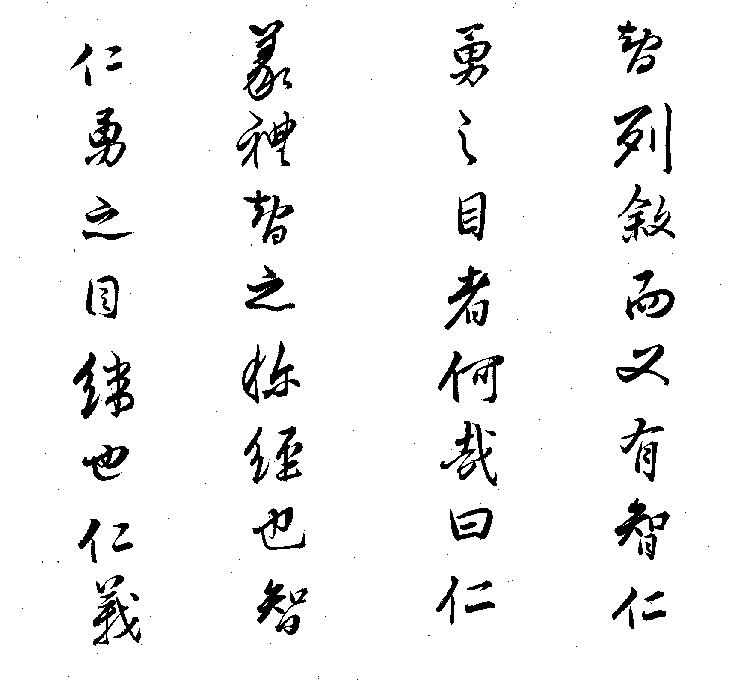 智列敘而又有智仁
勇之目者何哉曰仁
義禮智之称經也智
仁勇之目緯也仁義